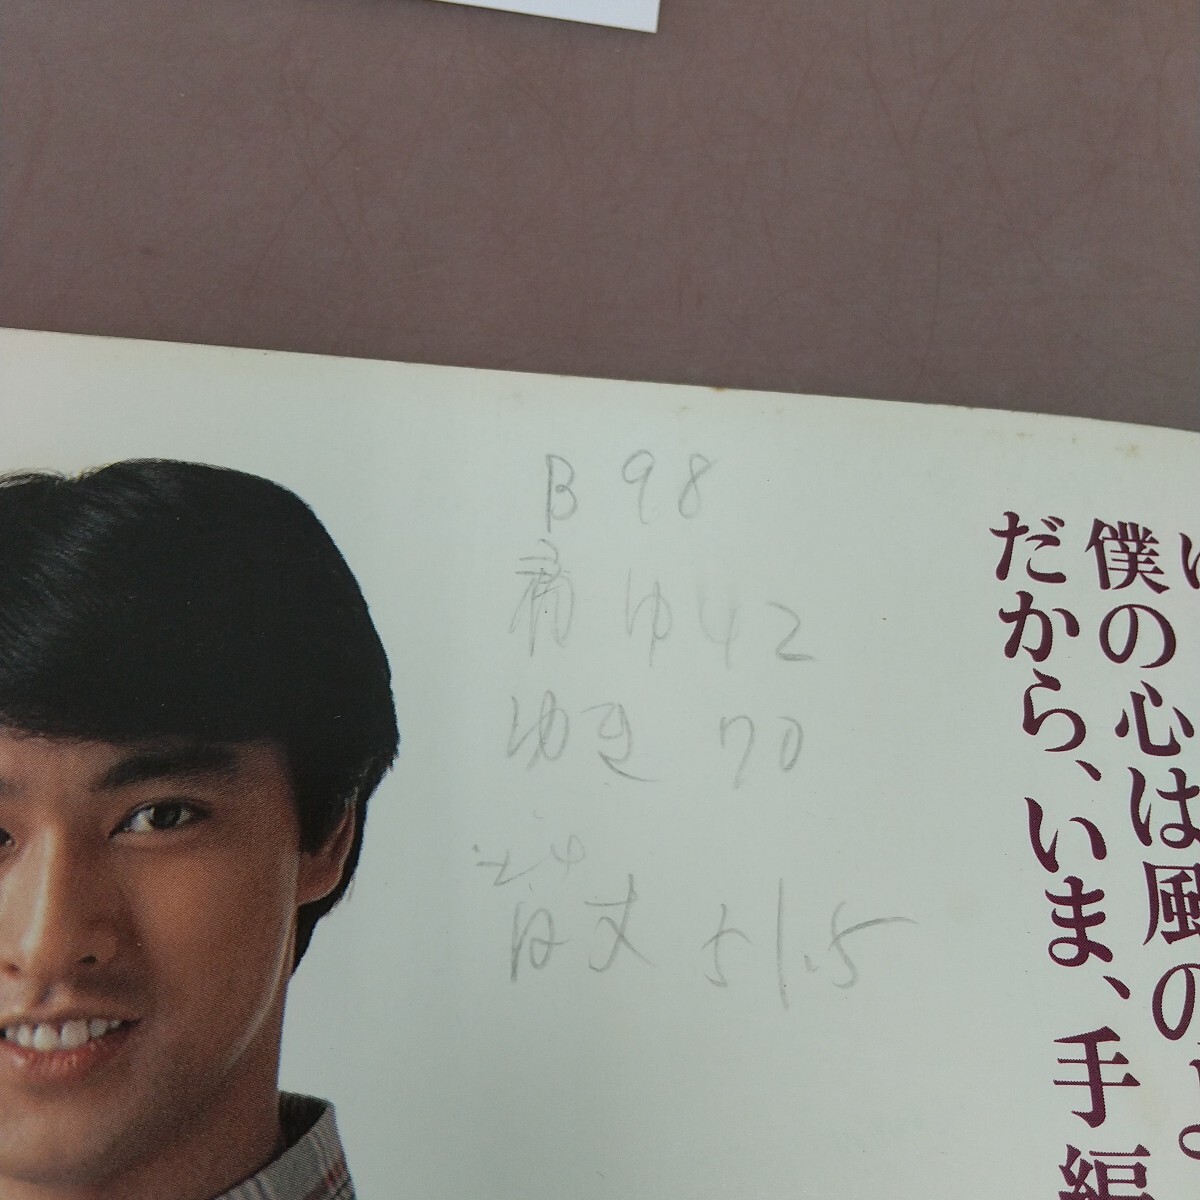 B 98
肩ゆ 42
ゆき 70
背丈 51.5
僕の心は風の
だから、いま、手編